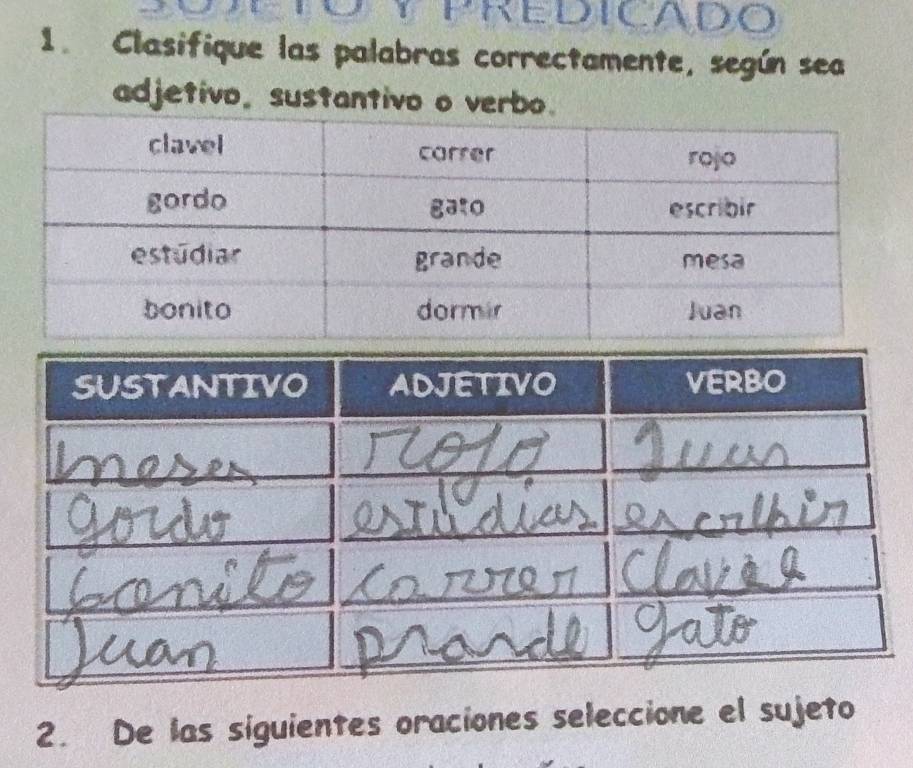 SUJETO Y PREDICADO
1. Clasifique las palabras correctamente, según sea
adjetivo, sustantivo o verbo.
clavel correr rojo
gordo gato escribir
estúdiar grande mesa
bonito dormir Juan
SUSTANTIVO ADJETIVO VERBO
mesa rojo Juan
gordo estúdiar escribir
bonito correr Clavel
Juan grande gato
2. De las siguientes oraciones seleccione el sujeto